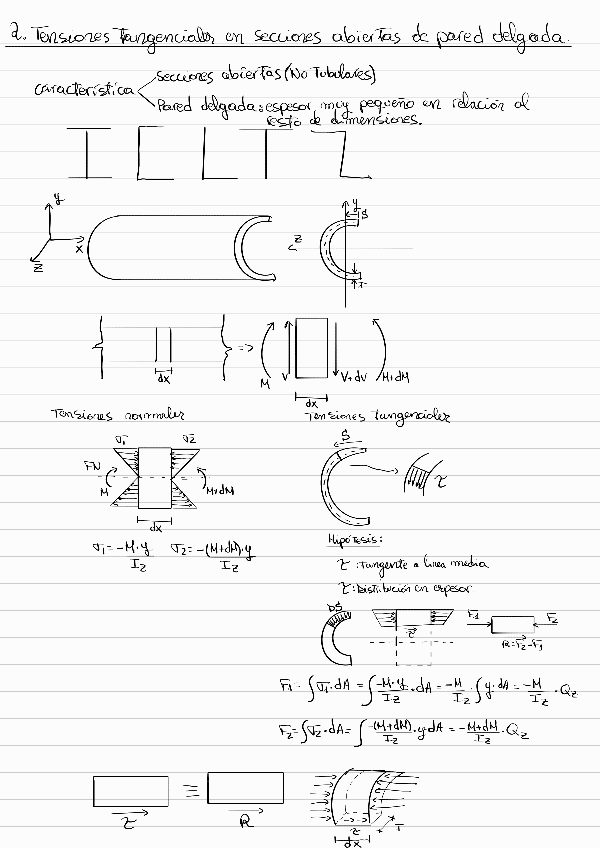 2. Tensiones Tangenciales en secciones abiertas de pared delgada.
característica
Secciones abiertas (No Tubulares)
Pared delgada: espesor muy pequeño en relación al
resto de dimensiones.
y
x
z
z
y
S
T
dx
=>
M
V
V+dV
M+dM
dx
Tensiones normales
Tensiones tangenciales
σ1
σ2
FN
M
M+dM
dx
σ1 = -M·y/Iz σ2 = -(M+dM)·y/Iz
S
τ
Hipótesis:
τ: Tangente a línea media
τ: Distribución en espesor
DS
τ
F1
F2
R=F2-F1
F1 = ∫σ1·dA = ∫-M·y/Iz·dA = -M/Iz·∫y·dA = -M/Iz·Qz
F2 = ∫σ2·dA = ∫-(M+dM)/Iz·y·dA = -M+dM/Iz·Qz
τ
≡
R
τ
T
dx